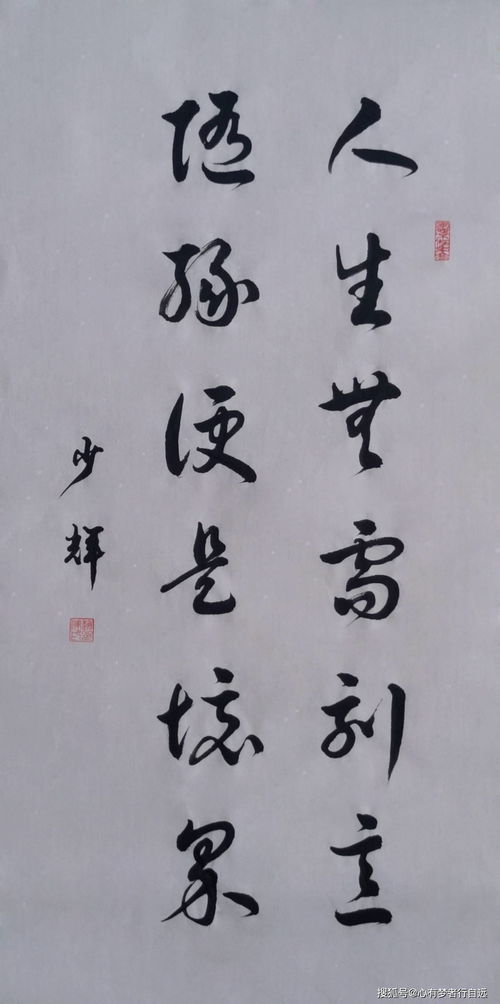 人生無需刻意
随緣便是境界
少輝
搜狐号@心有梦者行自远